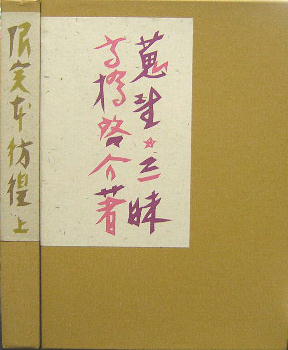 蒐集☆三昧
高橋啓介著
限定本彷徨 上